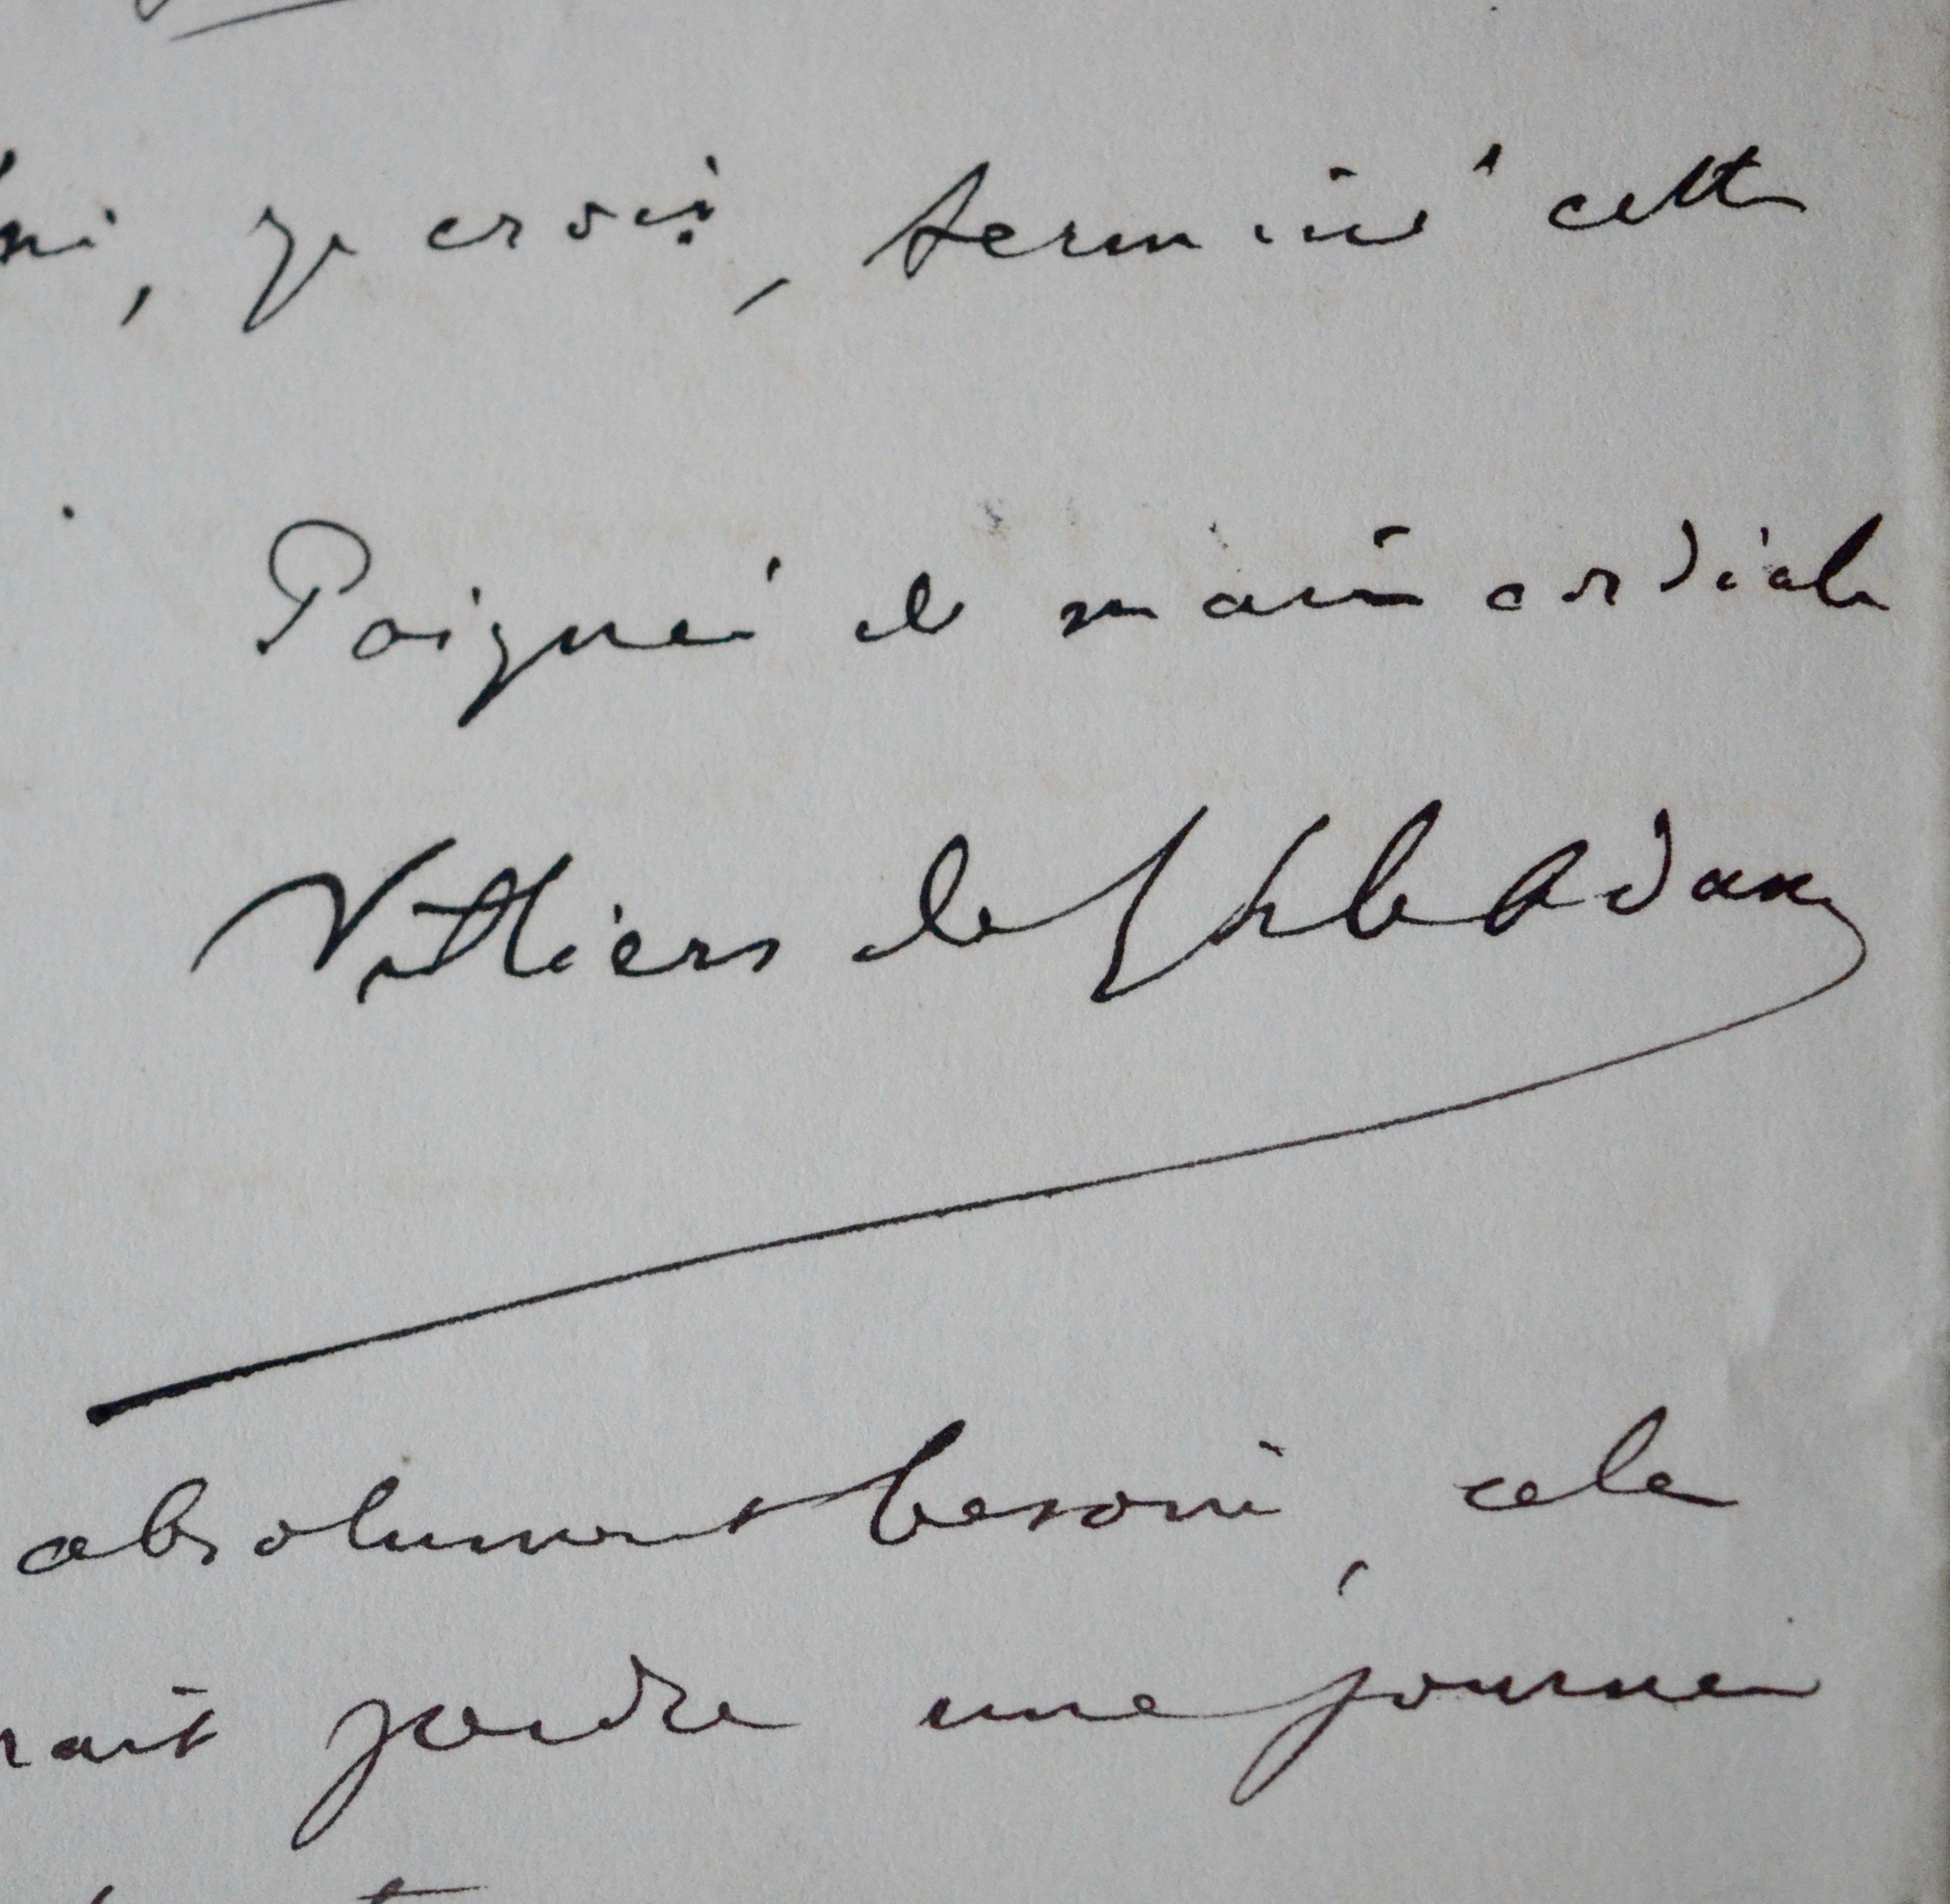 , je crois, terminé cette
Poignée de main cordiale
Villiers de l'Isle Adam
absolument besoin, cela
rait perdre une journée